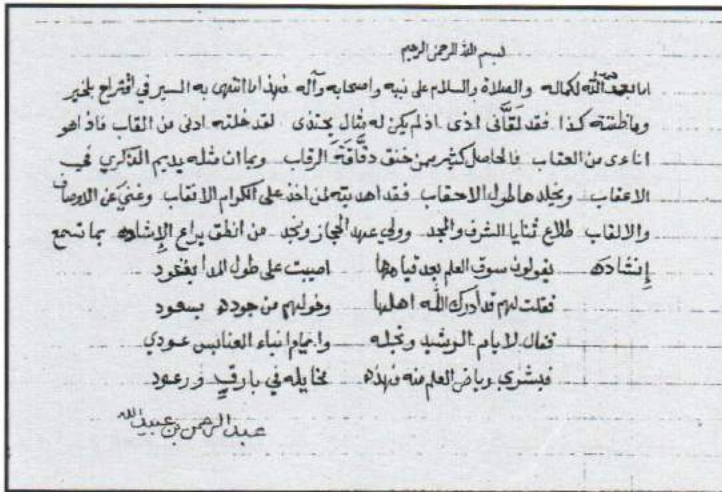 بسم الله الرحمن الرحيم
اما بعد حمد الله لكماله والصلاة والسلام على نبيه واصحابه وآله فهذا ما انتهى به السير في اقتراح بلخير
وما ظننته كذا فقد لقَّانى اذى اذ لم يكن له مثال يحتذى لقد خلته ادنى من القاب فاذا هو
اناى من العقاب فالحاصل كثير ممن خنق دقاقة الرقاب وبما ان مثله يديم الذكرى في
الاعقاب ويخلدها طول الاحقاب فقد اهديته لمن اخذ على الكرام الانقاب وغني عن الاوصاف
والالقاب طلاع ثنايا الشرف والمجد وولي عهد الحجاز ونجد من انطق يراع الإشاده بما تسمع
إنشاده يقولون سوق العلم بعد قيامها اصيبت على طول المدا بقعود
فقلت لهم قد أدرك الله اهلها وخولهم من جوده بسعود
فقال لايام الرشيد ونجله وايام ابناء العنابس عودي
فبشرى رياض العلم منه فهذه مخايله في بارق ورعود
عبد الرحمن بن عبيد الله